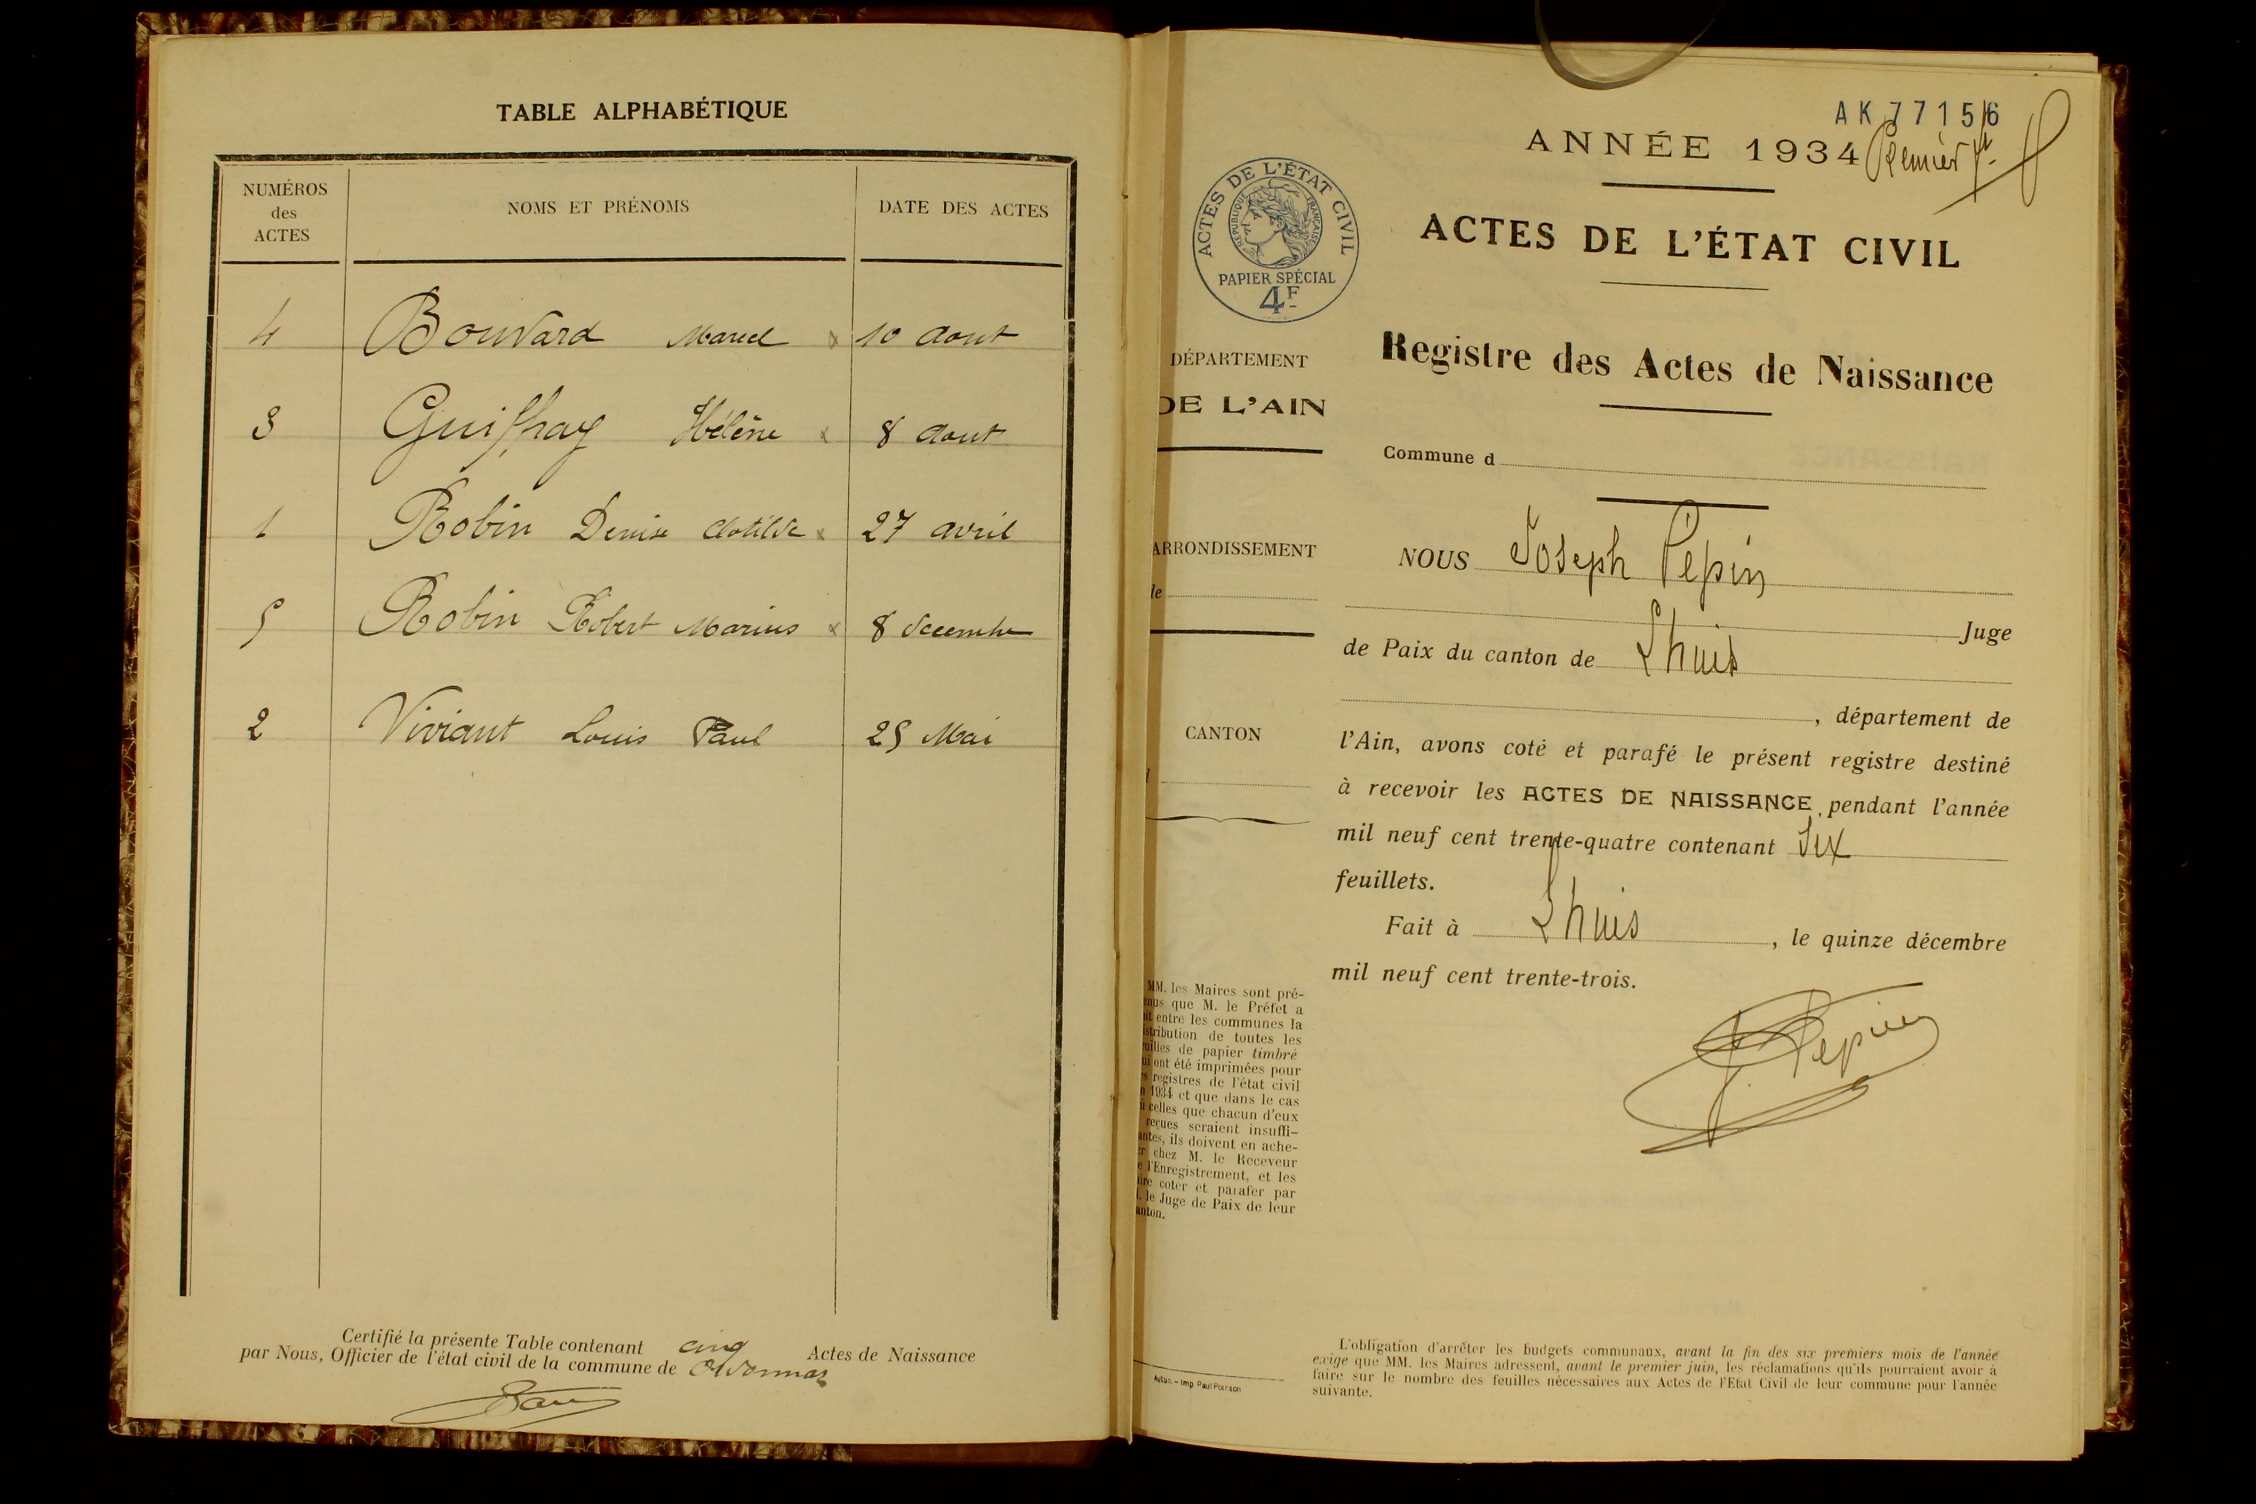 TABLE ALPHABÉTIQUE
NUMÉROS
des
ACTES
NOMS ET PRÉNOMS
DATE DES ACTES
4 Bouvard Marcel x 10 aout
3 Guiffray Hélène x 8 aout
1 Robin Denise Clotilde x 27 avril
5 Robin Robert Marius x 8 decembre
2 Viviant Louis Paul 25 Mai
Certifié la présente Table contenant cinq Actes de Naissance
par Nous, Officier de l'état civil de la commune de
AK 77156
ANNÉE 1934 Premier ft
ACTES DE L'ÉTAT CIVIL
RÉPUBLIQUE FRANÇAISE
PAPIER SPÉCIAL
4F
ACTES DE L'ÉTAT CIVIL
DÉPARTEMENT
DE L'AIN
Registre des Actes de Naissance
Commune d
ARRONDISSEMENT
de
CANTON
NOUS Joseph Pépin
Juge
de Paix du canton de Lhuis
, département de
l'Ain, avons coté et parafé le présent registre destiné
à recevoir les ACTES DE NAISSANCE pendant l'année
mil neuf cent trente-quatre contenant Six
feuillets.
Fait à Lhuis, le quinze décembre
mil neuf cent trente-trois.
J. Pepin
MM. les Maires sont pré-
enus que M. le Préfet a
it entre les communes la
istribution de toutes les
uilles de papier timbré
ui ont été imprimées pour
es registres de l'état civil
n 1934 et que dans le cas
ù celles que chacun d'eux
reçues seraient insuffi-
antes, ils doivent en ache-
er chez M. le Receveur
e l'Enregistrement, et les
ire coter et parafer par
. le Juge de Paix de leur
anton.
Autun. – Imp. Paul Poirson
L'obligation d'arrêter les budgets communaux, avant la fin des six premiers mois de l'année
exige que MM. les Maires adressent, avant le premier juin, les réclamations qu'ils pourraient avoir à
faire sur le nombre des feuilles nécessaires aux Actes de l'Etat Civil de leur commune pour l'année
suivante.